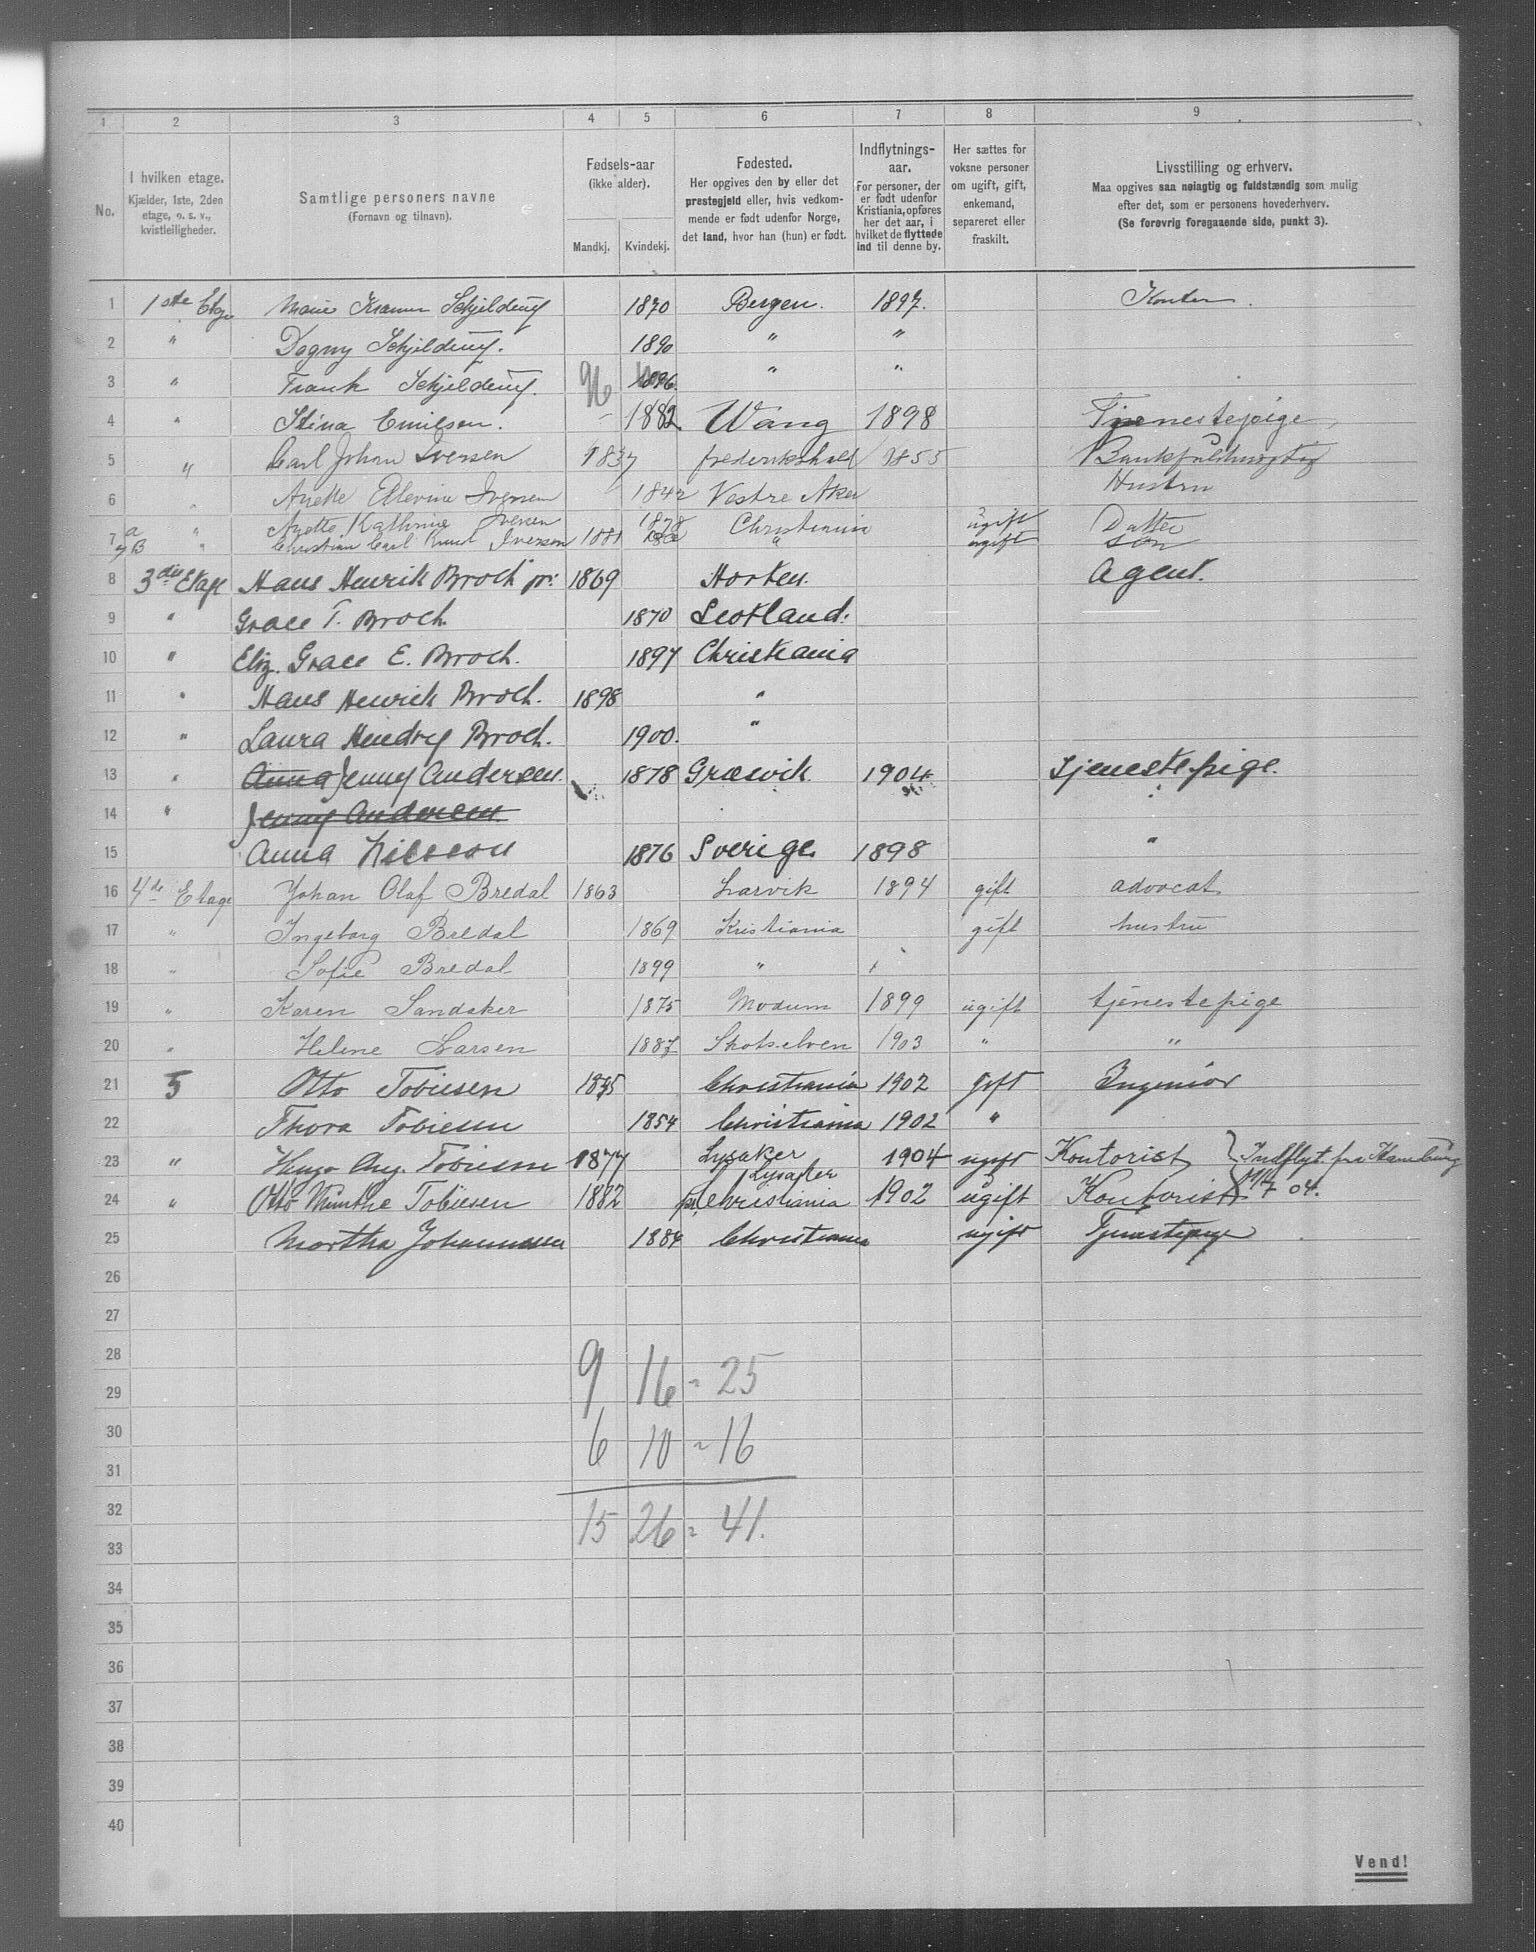 1 2 3 4 5 6 7 8 9
No.
I hvilken etage.
Kjælder, 1ste, 2den
etage, o. s. v.,
kvistleiligheder.
Samtlige personers navne
(Fornavn og tilnavn).
Fødsels-aar
(ikke alder).
Mandkj. Kvindekj.
Fødested.
Her opgives den by eller det
præstegjeld eller, hvis vedkom-
mende er født udenfor Norge,
det land, hvor han (hun) er født.
Indflytnings-
aar.
For personer, der
er født udenfor
Kristiania, opføres
her det aar, i
hvilket de flyttede
ind til denne by.
Her sættes for
voksne personer
om ugift, gift,
enkemand,
separeret eller
fraskilt.
Livsstilling og erhverv.
Maa opgives saa nøiagtig og fuldstændig som mulig
efter det, som er personens hovederhverv.
(Se forøvrig foregaaende side, punkt 3).
1 1ste Etage Marie Kramer Schjelderup 1870 Bergen. 1897.
2 " Dagny Schjelderup. 1890 " "
3 " Frank Schjelderup. 96 1896. " "
4 " Stina Emilsen. 1882 Wang 1898 Tjenestepige
5 " Carl Johan Iversen 1837 Frederikshald 1855
6 " Anette Elevine Iversen 1842 Vestre Aker Hustru
7 a " Anette Kathrine Iversen 1878 Christiania ugift Datter
7 B " Christian Carl Knut Iversen 1881 " ugift Søn
8 3die Etage Hans Henrik Broch jr: 1869 Horten. Agent.
9 " Grace T. Broch 1870 Scotland.
10 " Eliz. Grace E. Broch. 1897 Christiania
11 " Hans Henrick Broch. 1898 "
12 " Laura Hendry Broch. 1900. "
13 " Anna Jenny Andersen. 1878 Græsvik 1904 Tjenestepige.
14 " Jenny Andersen.
15 Anna Nilsson 1876 Sverige 1898 "
16 4de Etage Johan Olaf Bredal 1863 Larvik 1894 gift advocat
17 " Ingeborg Bredal 1869 Kristiania gift hustru
18 " Sofie Bredal 1899 "
19 " Karen Sandaker 1875 Modum 1899 ugift tjenestepige
20 " Helene Larsen 1887 Skotselven 1903 " "
21 5 Otto Tobiesen 1845 Christiania 1902 gift Ingeniør
22 Thora Tobiesen 1854 Christiania 1902 "
23 " Hugo Aug. Tobiesen 1877 Lysaker 1904 ugift Kontorist } Indflyt. fra Hamburg
24 " Otto Munthe Tobiesen 1882 Lysaker Christiania 1902 ugift Kontorist 04.
25 Martha Johannessen 1884 Christiania ugift Tjenestepige
26
27
28
9 16 = 25
29
30
6 10 = 16
31
32
15 26 = 41.
33
34
35
36
37
38
39
40
Vend!